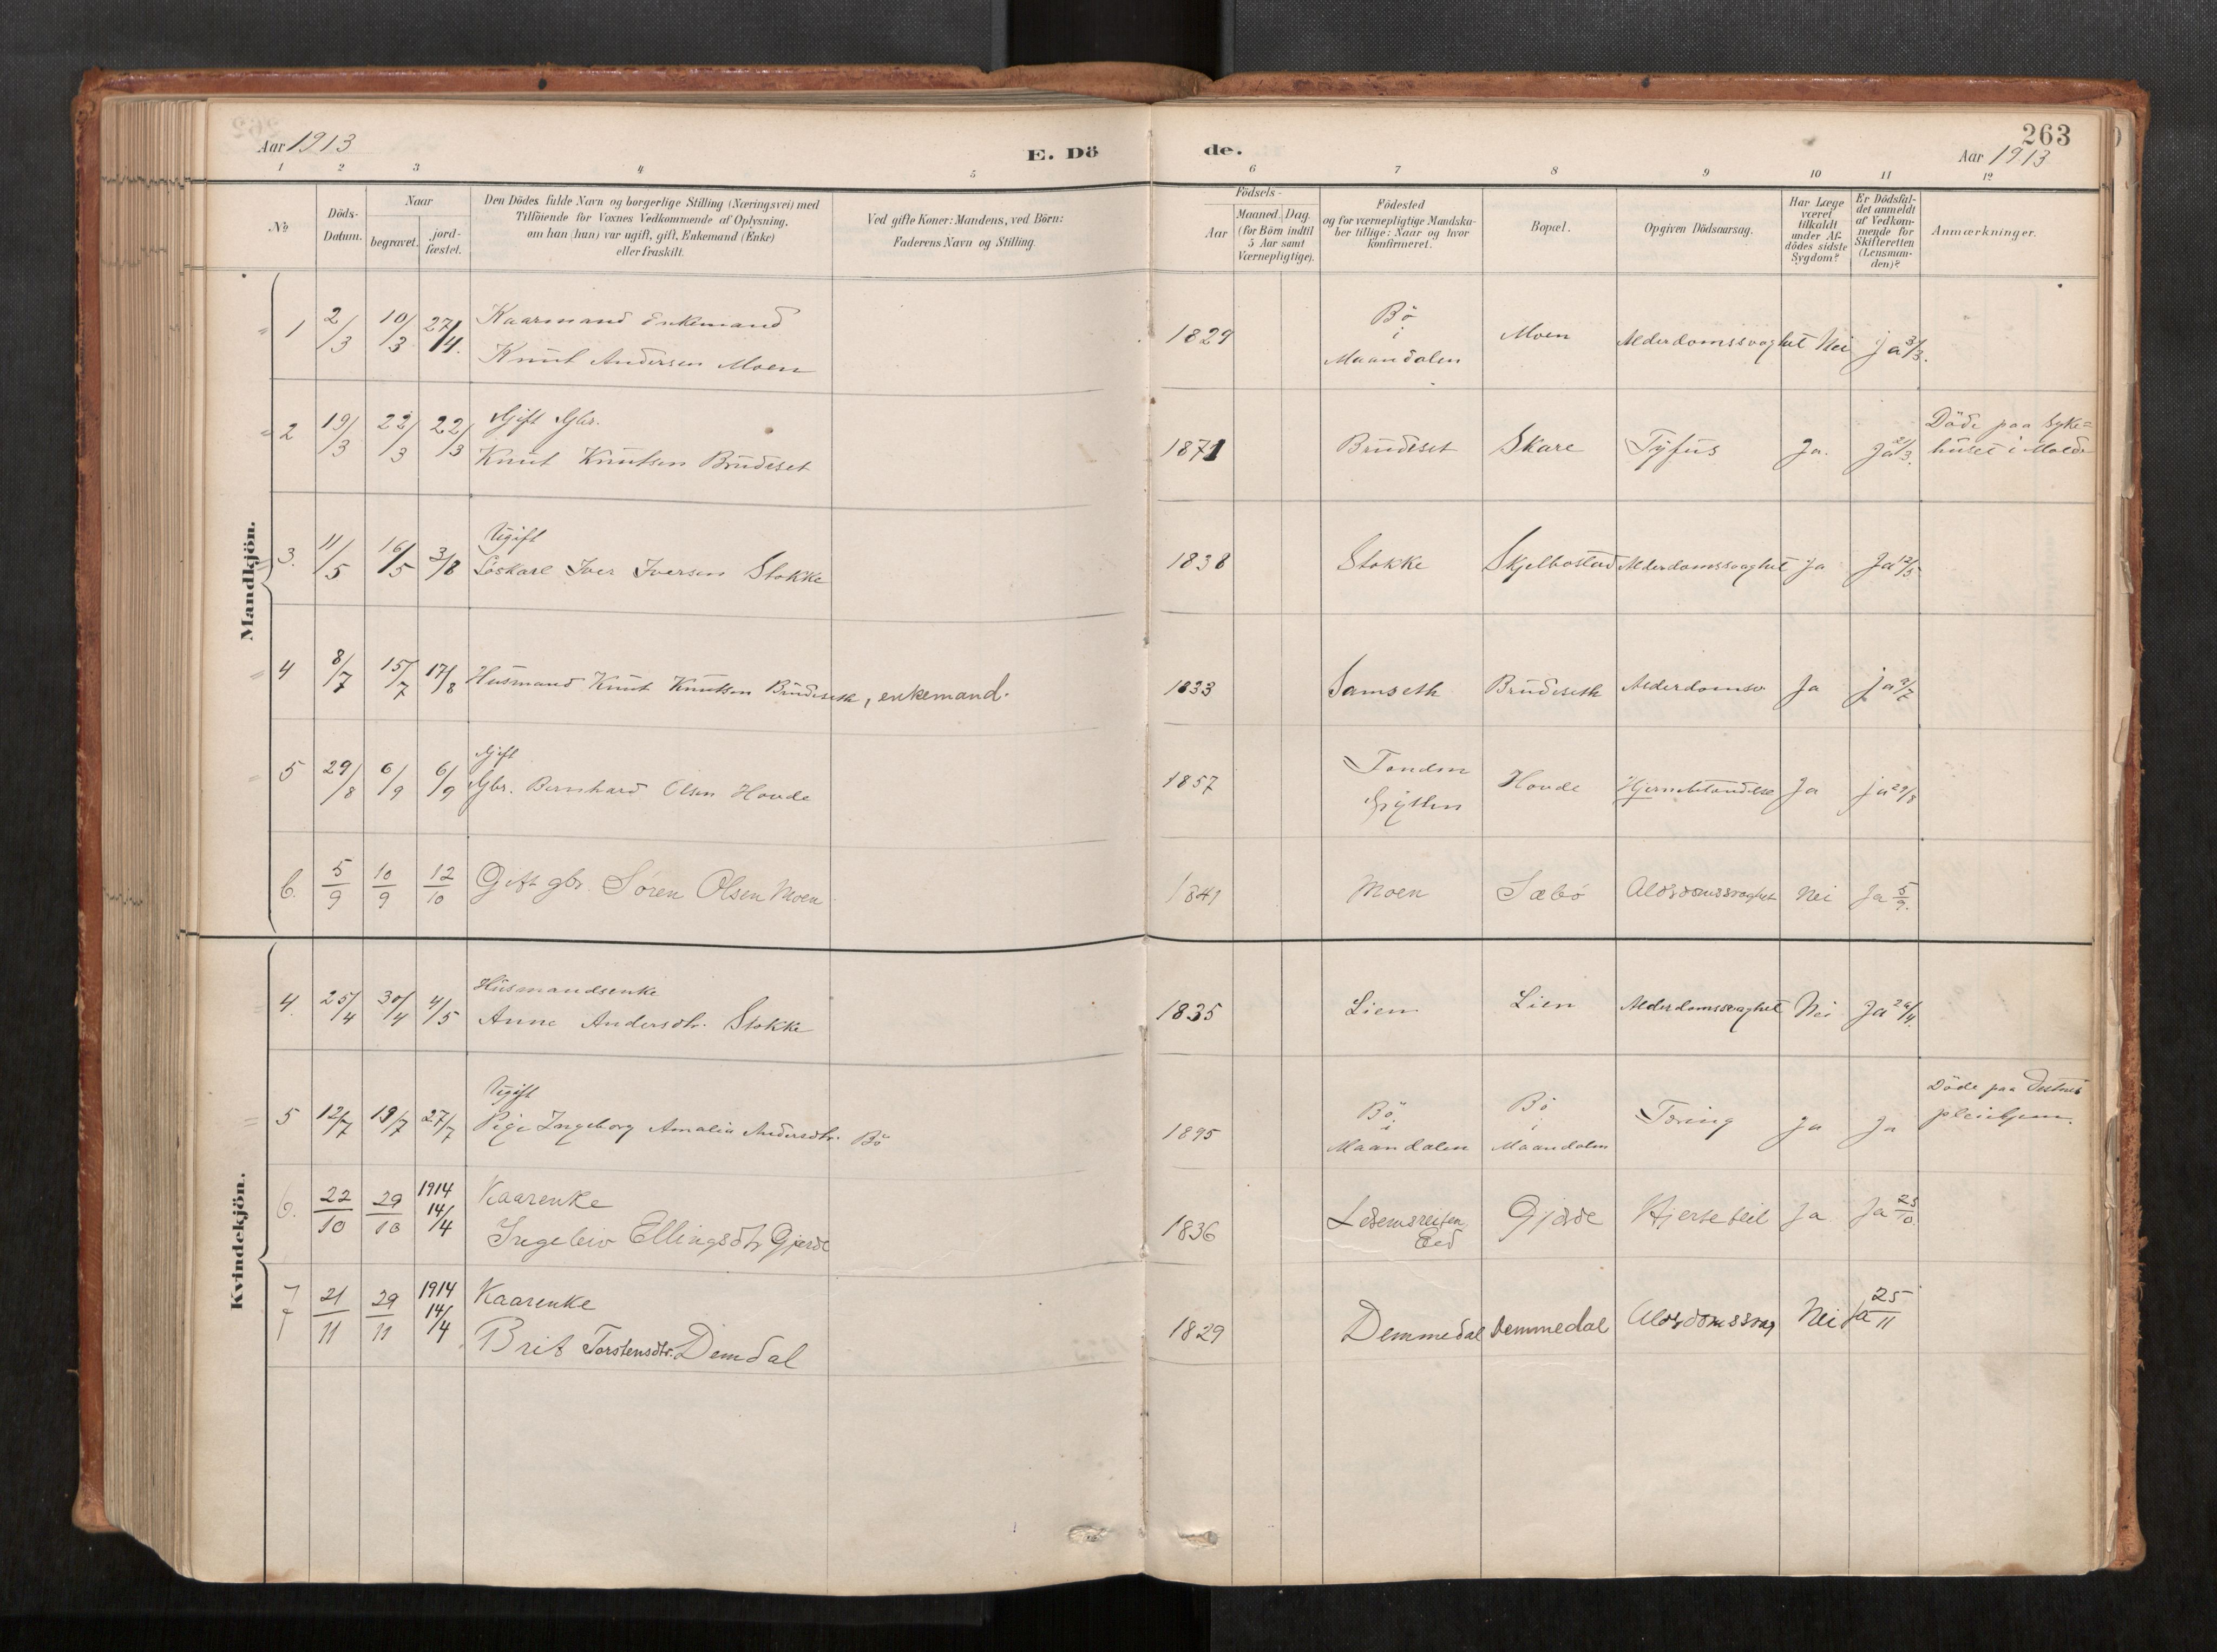 Aar 1913
E. Dö
de.
263
Aar 1913
1 2 3 4 5 6 7 8 9 10 11 12
№
Döds-Datum.
Naar
begravet.
jord-fæstet.
Den Dödes fulde Navn og borgerlige Stilling (Næringsvei) med
Tilföiende for Voxnes Vedkommende af Oplysning,
om han (hun) var ugift, gift, Enkemand (Enke)
eller fraskilt.
Ved gifte Koner: Mandens, ved Börn:
Faderens Navn og Stilling.
Födsels-
Aar
Maaned. Dag.
(for Börn indtil
5 Aar samt
Værnepligtige).
Födested
og for værnepligtige Mandska-
ber tillige: Naar og hvor
konfirmeret.
Bopæl.
Opgiven Dödsaarsag.
Har Læge
været
tilkaldt
under Af-
dödes sidste
Sygdom?
Er Dödsfal-
det anmeldt
af Vedkom-
mende for
Skifteretten
(Lensman-
den)?
Anmærkninger.
Mandkjön.
1 2/3 10/3 27/4. Kaarmand Enkemand
Knut Andersen Moen 1829 Bö i Maandalen Moen Alderdomssvaghet Nei ja 3/3.
2 19/3 22/3 22/3 Gift Gbr.
Knut Knutsen Brudeset 1871 Brudeset Skare Tyfus Ja. Ja 21/3. Döde paa Syke=
huset i Molde
3. 11/5 16/5 3/8 Ugift
Löskarl Iver Iversen Stokke 1838 Stokke Skjelbostad Alderdomssvaghet Ja Ja 12/5
4 8/7 15/7 17/8 Husmand Knut Knutsen Brudeseth, enkemand. 1833 Samseth Brudeseth Alderdomsv Ja ja 9/7
5 29/8 6/9 6/9 Gift
Gbr. Bernhard Olsen Hovde 1857 Grytten Hovde Hjernebetændelse Ja ja 29/8
6. 5/9 10/9 12/10 Gift gbr. Søren Olsen Moen 1841 Moen Sæbö Alderdomssvaghet Nei Ja 5/9.
Kvindekjön.
4. 25/4 30/4 4/5 Husmandsenke
Anne Andersdtr. Stokke 1835 Lien Lien Alderdomssvaghet Nei Ja 26/4.
5 12/7 19/7 27/7 Ugift
Pige Ingeborg Amalia Andersdtr. Bö 1895 Bö i Maandalen Bö i Maandalen Tæring Ja Ja Döde paa
pleiehjem.
6. 22/10 29/10 1914 14/4 Kaarenke
Ingeleiv Ellingsdtr Gjerde 1836 Eid Gjerde Hjertefeil Ja Ja 25/10.
7 21/11 29/11 1914 14/4 Kaarenke
Brit Torstensdtr. Demdal 1829 Demmedal Demmedal Alderdomssvag Nei Ja 25/11